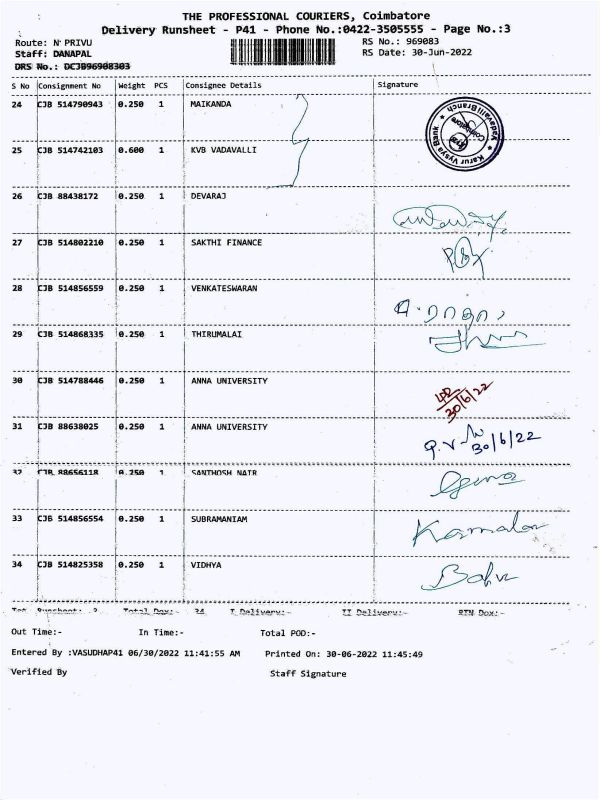 THE PROFESSIONAL COURIERS, Coimbatore
Delivery Runsheet - P41 - Phone No.:0422-3505555 - Page No.:3
Route: N PRIVU RS No.: 969083
Staff: DANAPAL RS Date: 30-Jun-2022
DRS No.: DCJB96908303
S No Consignment No Weight PCS Consignee Details Signature
24 CJB 514790943 0.250 1 MAIKANDA
Karur Vysya Bank Vadavalli Branch Coimbatore
25 CJB 514742103 0.600 1 KVB VADAVALLI
26 CJB 88438172 0.250 1 DEVARAJ
27 CJB 514802210 0.250 1 SAKTHI FINANCE
28 CJB 514856559 0.250 1 VENKATESWARAN
29 CJB 514868335 0.250 1 THIRUMALAI
30 CJB 514788446 0.250 1 ANNA UNIVERSITY 30/6/22
31 CJB 88638025 0.250 1 ANNA UNIVERSITY 30/6/22
32 CJB 88656118 0.250 1 SANTHOSH NAIR
33 CJB 514856554 0.250 1 SUBRAMANIAM Kamala
34 CJB 514825358 0.250 1 VIDHYA
Tot Runsheet: 3 Total Dox:- 34 I Delivery:- II Delivery:- RTN Dox:-
Out Time:- In Time:- Total POD:-
Entered By :VASUDHAP41 06/30/2022 11:41:55 AM Printed On: 30-06-2022 11:45:49
Verified By Staff Signature